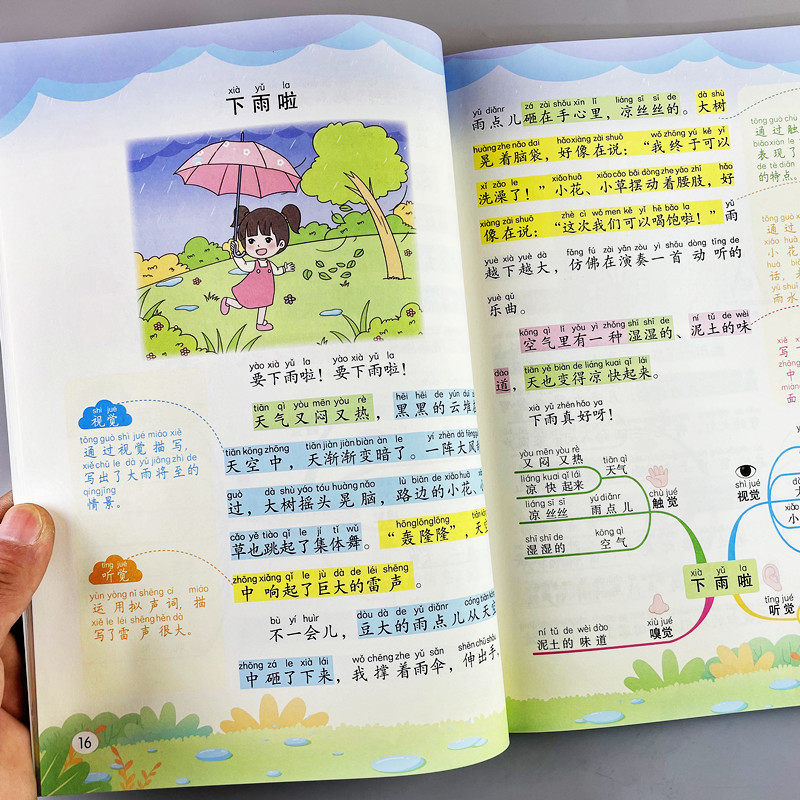 xià yǔ la
下雨啦
yào xià yǔ la yào xià yǔ la
要下雨啦！要下雨啦！
tiān qì yòu mēn yòu rè hēi hēi de yún duī
天气又闷又热，黑黑的云堆
tiān kōng zhōng tiān jiàn jiàn biàn àn le yí zhèn dà fēng
天空中，天渐渐变暗了。一阵大风
guò dà shù yáo tóu huàng nǎo lù biān de xiǎo huā
过，大树摇头晃脑，路边的小花、
cǎo yě tiào qǐ le jí tǐ wǔ hōng lōng lōng tiān
草也跳起了集体舞。“轰隆隆”，天
zhōng xiǎng qǐ le jù dà de léi shēng
中响起了巨大的雷声。
bù yí huìr dòu dà de yǔ diǎnr cóng tiān kōng
不一会儿，豆大的雨点儿从天空
zhōng zá le xià lái wǒ chēng zhe yǔ sǎn shēn chū shǒu
中砸了下来，我撑着雨伞，伸出手、
shì jué
视觉
tōng guò shì jué miáo xiě
通过视觉描写，
xiě chū le dà yǔ jiāng zhì de
写出了大雨将至的
qíng jǐng
情景。
tīng jué
听觉
yùn yòng nǐ shēng cí miáo
运用拟声词，描
xiě le léi shēng hěn dà
写了雷声很大。
16
yǔ diǎnr zá zài shǒu xīn lǐ liáng sī sī de dà shù
雨点儿砸在手心里，凉丝丝的。大树
huàng zhe nǎo dai hǎo xiàng zài shuō wǒ zhōng yú kě yǐ
晃着脑袋，好像在说：“我终于可以
xǐ zǎo le xiǎo huā xiǎo cǎo bǎi dòng zhe yāo zhī hǎo
洗澡了！”小花、小草摆动着腰肢，好
xiàng zài shuō zhè cì wǒ men kě yǐ hē bǎo la yǔ
像在说：“这次我们可以喝饱啦！”雨
yuè xià yuè dà fǎng fú zài yǎn zòu yì shǒu dòng tīng de
越下越大，仿佛在演奏一首动听的
yuè qǔ
乐曲。
kōng qì lǐ yǒu yì zhǒng shī shī de ní tǔ de wèi
空气里有一种湿湿的、泥土的味
dào tiān yě biàn de liáng kuai qǐ lái
道，天也变得凉快起来。
xià yǔ zhēn hǎo ya
下雨真好呀！
yòu mēn yòu rè
又闷又热
tiān qì
天气
liáng kuai qǐ lái
凉快起来
liáng sī sī
凉丝丝
yǔ diǎnr
雨点儿
shī shī de
湿湿的
kōng qì
空气
chù jué
触觉
ní tǔ de wèi dào
泥土的味道
xiù jué
嗅觉
xià yǔ la
下雨啦
shì jué
视觉
tīng jué
听觉
tōng guò chù
通过触
biǎo xiàn le
表现了
de tè diǎn
的特点。